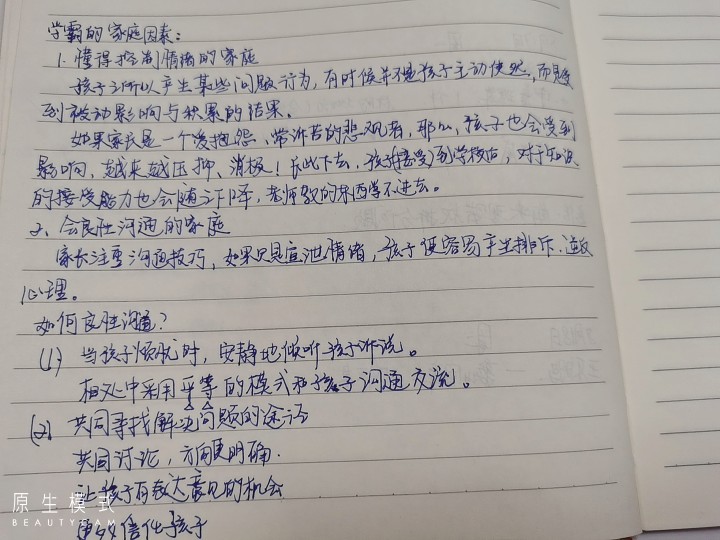 学霸的家庭因素:
1. 懂得控制情绪的家庭
孩子之所以产生某些问题行为,有时候并不是孩子主动使然,而是受
到被动影响与积累的结果。
如果家长是一个爱抱怨、常诉苦的悲观者,那么,孩子也会受到
影响,越来越压抑、消极!长此下去,孩子(接受)到学校后,对于知识
的接受能力也会随之下降,老师教的东西学不进去。
2、会良性沟通的家庭
家长注重沟通技巧,如果只是宣泄情绪,孩子便容易产生排斥、逆反
心理。
如何良性沟通?
(1) 当孩子烦忧时,安静地倾听孩子诉说。
相处中采用平等的模式和孩子沟通交流。
(2) 共同寻找解决问题的途径
共同讨论,方向更明确.
让孩子有表达意见的机会
更多信任孩子
原生模式
BEAUTYCAM